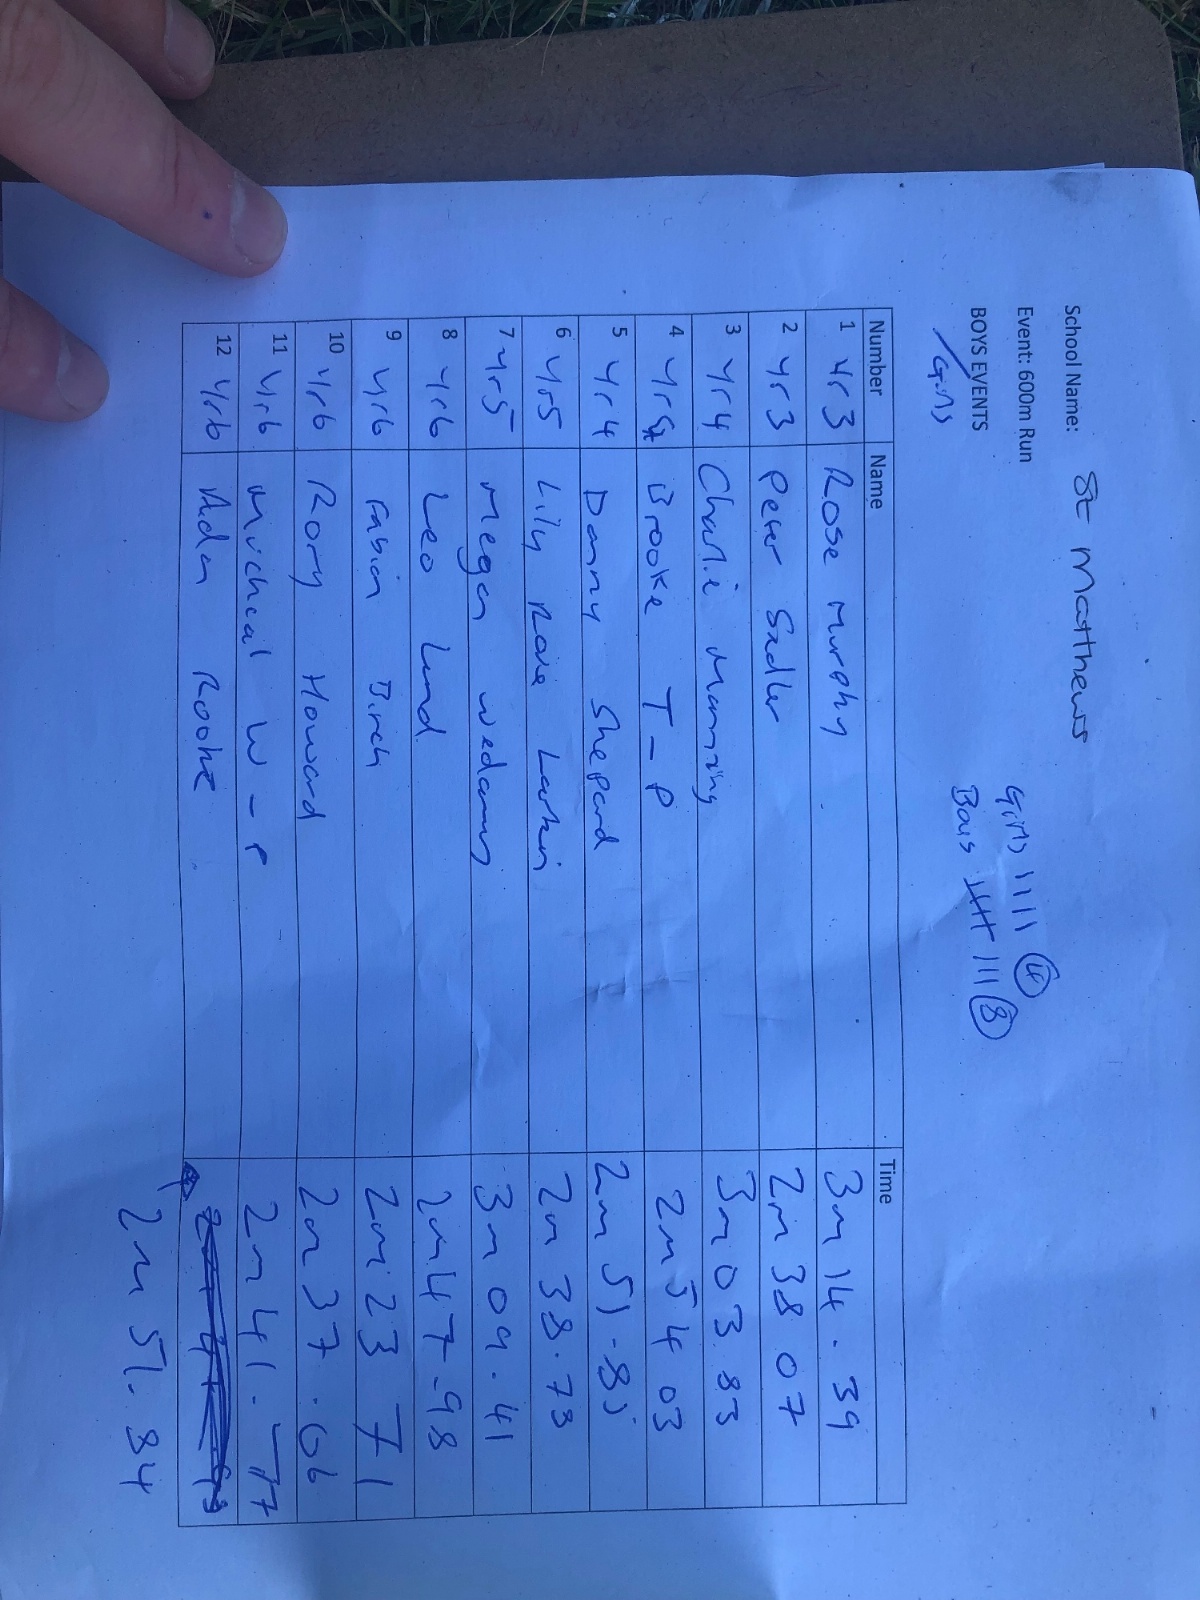 School Name: St Matthews
Event: 600m Run
Girls IIII 4
BOYS EVENTS
Bois IIII III 8
/Girls
Number Name Time
1 Yr3 Rose Murphy 3m 14.39
2 Yr3 Peter Sadler 2m 38 07
3 Yr4 Charlie Manning 3m 03.83
4 Brooke T-P 2m 54 03
5 Yr4 Danny Shepard 2m 51-85
6 Yr5 Lily Rose Larkin 2m 38.78
7 Yr5 Megan 3m 09.41
8 Yr6 Leo Lund 2m 47-98
9 Yr6 Fabian Birch 2m 23 71
10 Yr6 Rory Howard 2m 37.06
11 Yr6 Micheal W-P 2m 41.77
12 Yr6 Aidan Rooke
2m 51.84